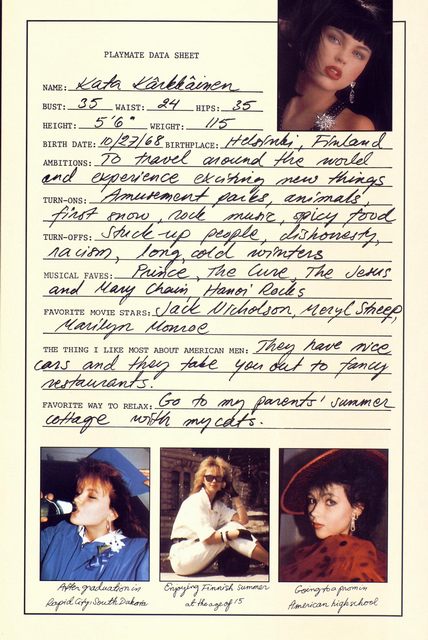 PLAYMATE DATA SHEET
NAME: Kata Kärkkäinen
BUST: 35 WAIST: 24 HIPS: 35
HEIGHT: 5'6" WEIGHT: 115
BIRTH DATE: 10/27/68 BIRTHPLACE: Helsinki, Finland
AMBITIONS: To travel around the world
and experience exciting new things
TURN-ONS: Amusement parks, animals,
first snow, rock music, spicy food
TURN-OFFS: Stuck-up people, dishonesty,
racism, long, cold winters
MUSICAL FAVES: Prince, The Cure, The Jesus
and Mary Chain, Hanoi Rocks
FAVORITE MOVIE STARS: Jack Nicholson, Meryl Streep,
Marilyn Monroe
THE THING I LIKE MOST ABOUT AMERICAN MEN: They have nice
cars and they take you out to fancy
restaurants.
FAVORITE WAY TO RELAX: Go to my parents' summer
cottage with my cats.
After graduation in
Rapid City, South Dakota
Enjoying Finnish summer
at the age of 15
Going to a prom in
American high school